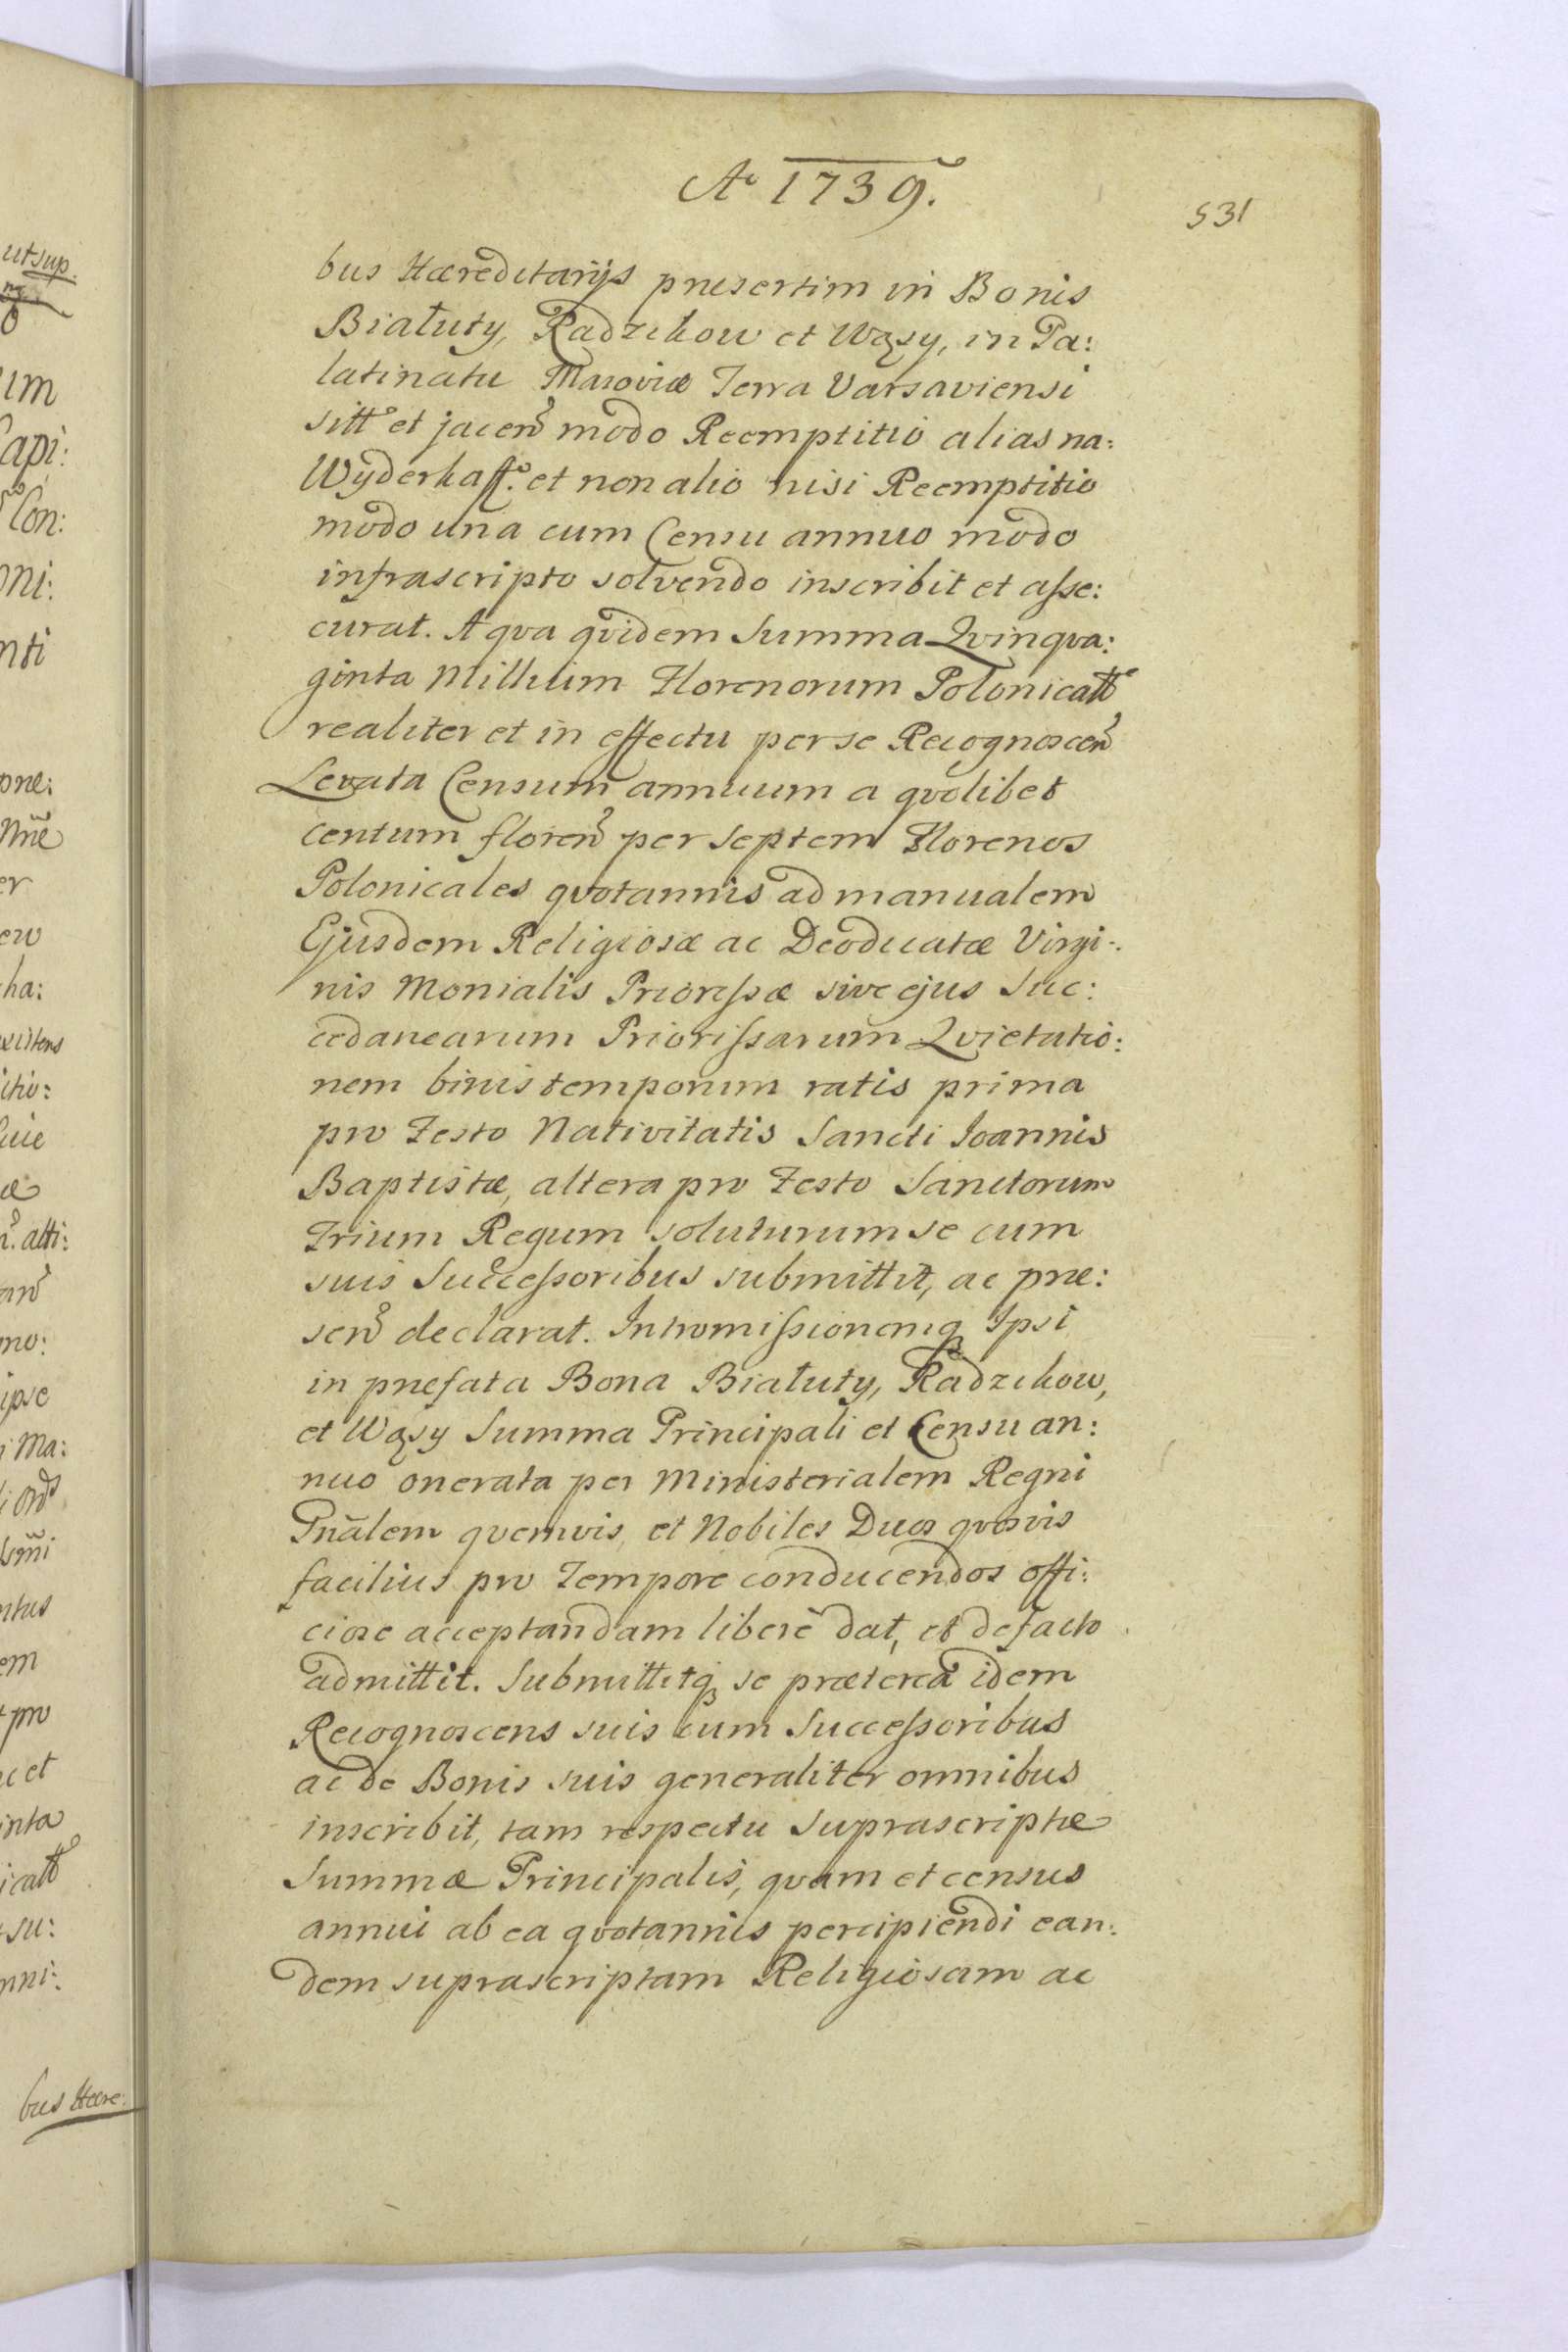 Ao 1739.
531
bus Hæreditarijs præsertim in Bonis
Białuty, Radzikow et Wąsy, in Pa:
latinatu Masoviæ Terra Varsaviensi
sitt et jacen modo Reemptitio alias na:
Wyderkaff. et non alio nisi Reemptitio
modo una cum Censu annuo modo
infrascripto solvendo inscribit et asse:
curat. A qva qvidem Summa Qvinqva:
ginta Millium Florenorum Polonicall
realiter et in effectu per se Recognoscen
Levata Censum annuum a qvolibet
centum floren per septem Florenos
Polonicales qvotannis ad manualem
Ejusdem Religiosæ ac Deodicatæ Virgi:
nis Monialis Priorissæ sive ejus Suc:
cedanearum Priorissarum Qvietatio:
nem binis temporum ratis prima
pro Festo Nativitatis Sancti Joannis
Baptistæ, altera pro Festo Sanctorum
Trium Regum soluturum se cum
suis Successoribus submittit, ac præ:
sen declarat. Intromissionemq Ipsi
in præfata Bona Białuty, Radzikow,
et Wąsy Summa Principali et Censu an:
nuo onerata per Ministerialem Regni
Gnãlem qvemvis, et Nobiles Duos qvosvis
facilius pro Tempore conducendos offi:
ciose acceptandam libere dat, et de facto
admittit. Submittitq se præterea idem
Recognoscens suis cum Successoribus
ac de Bonis suis generaliter omnibus
inscribit, tam respectu Suprascriptæ
Summæ Principalis, qvam et census
annui ab ea qvotannis percipiendi ean:
dem suprascriptam Religiosam ac
ut sup.
um
Capi:
Con:
oni:
nti
præ:
er
ew
cha:
existens
itio:
atti:
mo:
ipse
Ma:
ntus
em
pro
c et
inta
icall
su:
nni:
bus Hære: